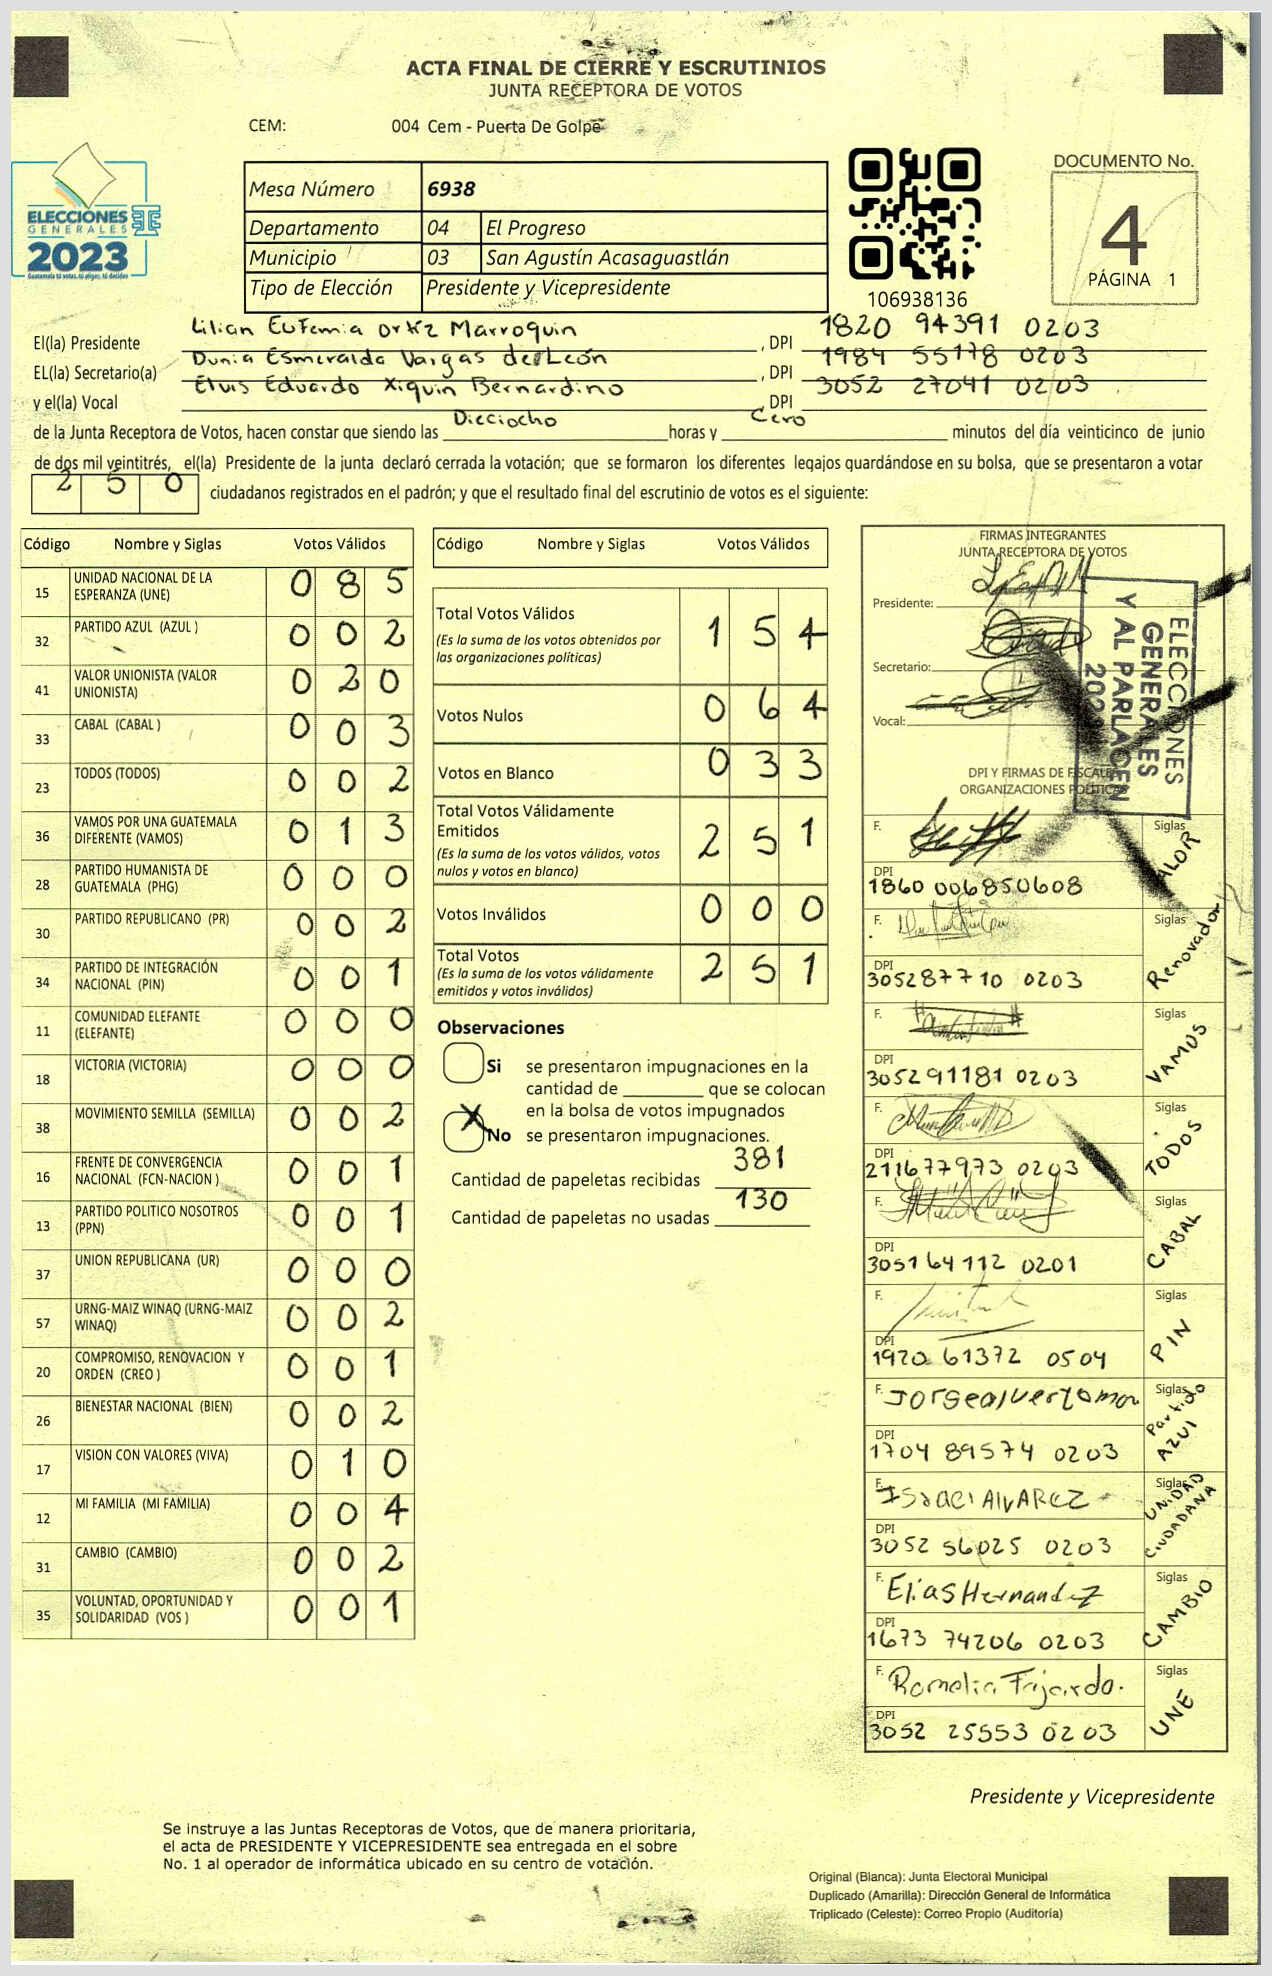 ACTA FINAL DE CIERRE Y ESCRUTINIOS
JUNTA RECEPTORA DE VOTOS
CEM: 004 Cem - Puerta De Golpe
ELECCIONES
GENERALES
2023
Guatemala tú votas, tú eliges, tú decides
Mesa Número 6938
Departamento 04 El Progreso
Municipio 03 San Agustín Acasaguastlán
Tipo de Elección Presidente y Vicepresidente
106938136
DOCUMENTO No.
4
PÁGINA 1
El(la) Presidente Lilian Eufemia Ortiz Marroquin , DPI 1820 94391 0203
EL(la) Secretario(a) Dunia Esmeralda Vargas de León , DPI 1984 55178 0203
y el(la) Vocal Elvis Eduardo Xiquin Bernardino , DPI 3052 27041 0203
de la Junta Receptora de Votos, hacen constar que siendo las Dieciocho horas y Cero minutos del día veinticinco de junio
de dos mil veintitrés, el(la) Presidente de la junta declaró cerrada la votación; que se formaron los diferentes legajos guardándose en su bolsa, que se presentaron a votar
250 ciudadanos registrados en el padrón; y que el resultado final del escrutinio de votos es el siguiente:
Código Nombre y Siglas Votos Válidos
15 UNIDAD NACIONAL DE LA ESPERANZA (UNE) 085
32 PARTIDO AZUL (AZUL ) 002
41 VALOR UNIONISTA (VALOR UNIONISTA) 020
33 CABAL (CABAL ) 003
23 TODOS (TODOS) 002
36 VAMOS POR UNA GUATEMALA DIFERENTE (VAMOS) 013
28 PARTIDO HUMANISTA DE GUATEMALA (PHG) 000
30 PARTIDO REPUBLICANO (PR) 002
34 PARTIDO DE INTEGRACIÓN NACIONAL (PIN) 001
11 COMUNIDAD ELEFANTE (ELEFANTE) 000
18 VICTORIA (VICTORIA) 000
38 MOVIMIENTO SEMILLA (SEMILLA) 002
16 FRENTE DE CONVERGENCIA NACIONAL (FCN-NACION ) 001
13 PARTIDO POLITICO NOSOTROS (PPN) 001
37 UNION REPUBLICANA (UR) 000
57 URNG-MAIZ WINAQ (URNG-MAIZ WINAQ) 002
20 COMPROMISO, RENOVACION Y ORDEN (CREO ) 001
26 BIENESTAR NACIONAL (BIEN) 002
17 VISION CON VALORES (VIVA) 010
12 MI FAMILIA (MI FAMILIA) 004
31 CAMBIO (CAMBIO) 002
35 VOLUNTAD, OPORTUNIDAD Y SOLIDARIDAD (VOS ) 001
Código Nombre y Siglas Votos Válidos
Total Votos Válidos 154
(Es la suma de los votos obtenidos por
las organizaciones políticas)
Votos Nulos 064
Votos en Blanco 033
Total Votos Válidamente
Emitidos 251
(Es la suma de los votos válidos, votos
nulos y votos en blanco)
Votos Inválidos 000
Total Votos 251
(Es la suma de los votos válidamente
emitidos y votos inválidos)
Observaciones
Si se presentaron impugnaciones en la
cantidad de ________ que se colocan
en la bolsa de votos impugnados
X No se presentaron impugnaciones.
Cantidad de papeletas recibidas 381
Cantidad de papeletas no usadas 130
FIRMAS INTEGRANTES
JUNTA RECEPTORA DE VOTOS
Presidente:
Secretario:
Vocal:
ELECCIONES
GENERALES
Y AL PARLACEN
DPI Y FIRMAS DE FISCALES
ORGANIZACIONES POLÍTICAS
F. Siglas VALOR
DPI 1860 006850608
F. Siglas Renovador
DPI 305287710 0203
F. Siglas VAMOS
DPI 305291181 0203
F. Siglas TODOS
DPI 211677973 0203
F. Siglas CABAL
DPI 305164112 0201
F. Siglas PIN
DPI 1920 61372 0504
F. Jorgealvertomor Siglas Partido AZUl
DPI 1704 89574 0203
F. ISaaCl AlVAREZ Siglas UNIDAD CIUDADANA
DPI 3052 56025 0203
F. Elias Hernandez Siglas CAMBIO
DPI 1673 74206 0203
F. Romelia Fajardo. Siglas UNE
DPI 3052 25553 0203
Presidente y Vicepresidente
Se instruye a las Juntas Receptoras de Votos, que de manera prioritaria,
el acta de PRESIDENTE Y VICEPRESIDENTE sea entregada en el sobre
No. 1 al operador de informática ubicado en su centro de votación.
Original (Blanca): Junta Electoral Municipal
Duplicado (Amarilla): Dirección General de Informática
Triplicado (Celeste): Correo Propio (Auditoría)